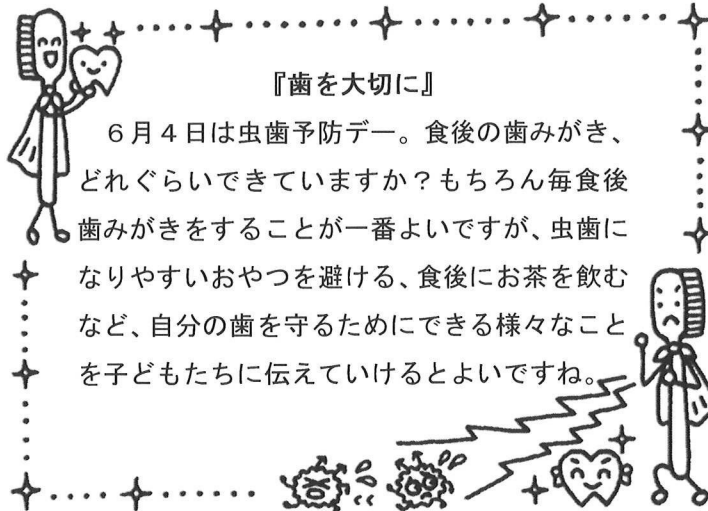 『歯を大切に』
６月４日は虫歯予防デー。食後の歯みがき、
どれぐらいできていますか？もちろん毎食後
歯みがきをすることが一番よいですが、虫歯に
なりやすいおやつを避ける、食後にお茶を飲む
など、自分の歯を守るためにできる様々なこと
を子どもたちに伝えていけるとよいですね。